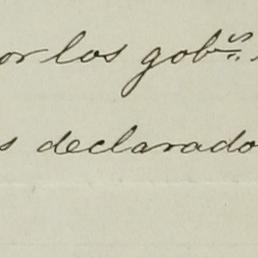 or los gob.ᵒˢ
s declarado